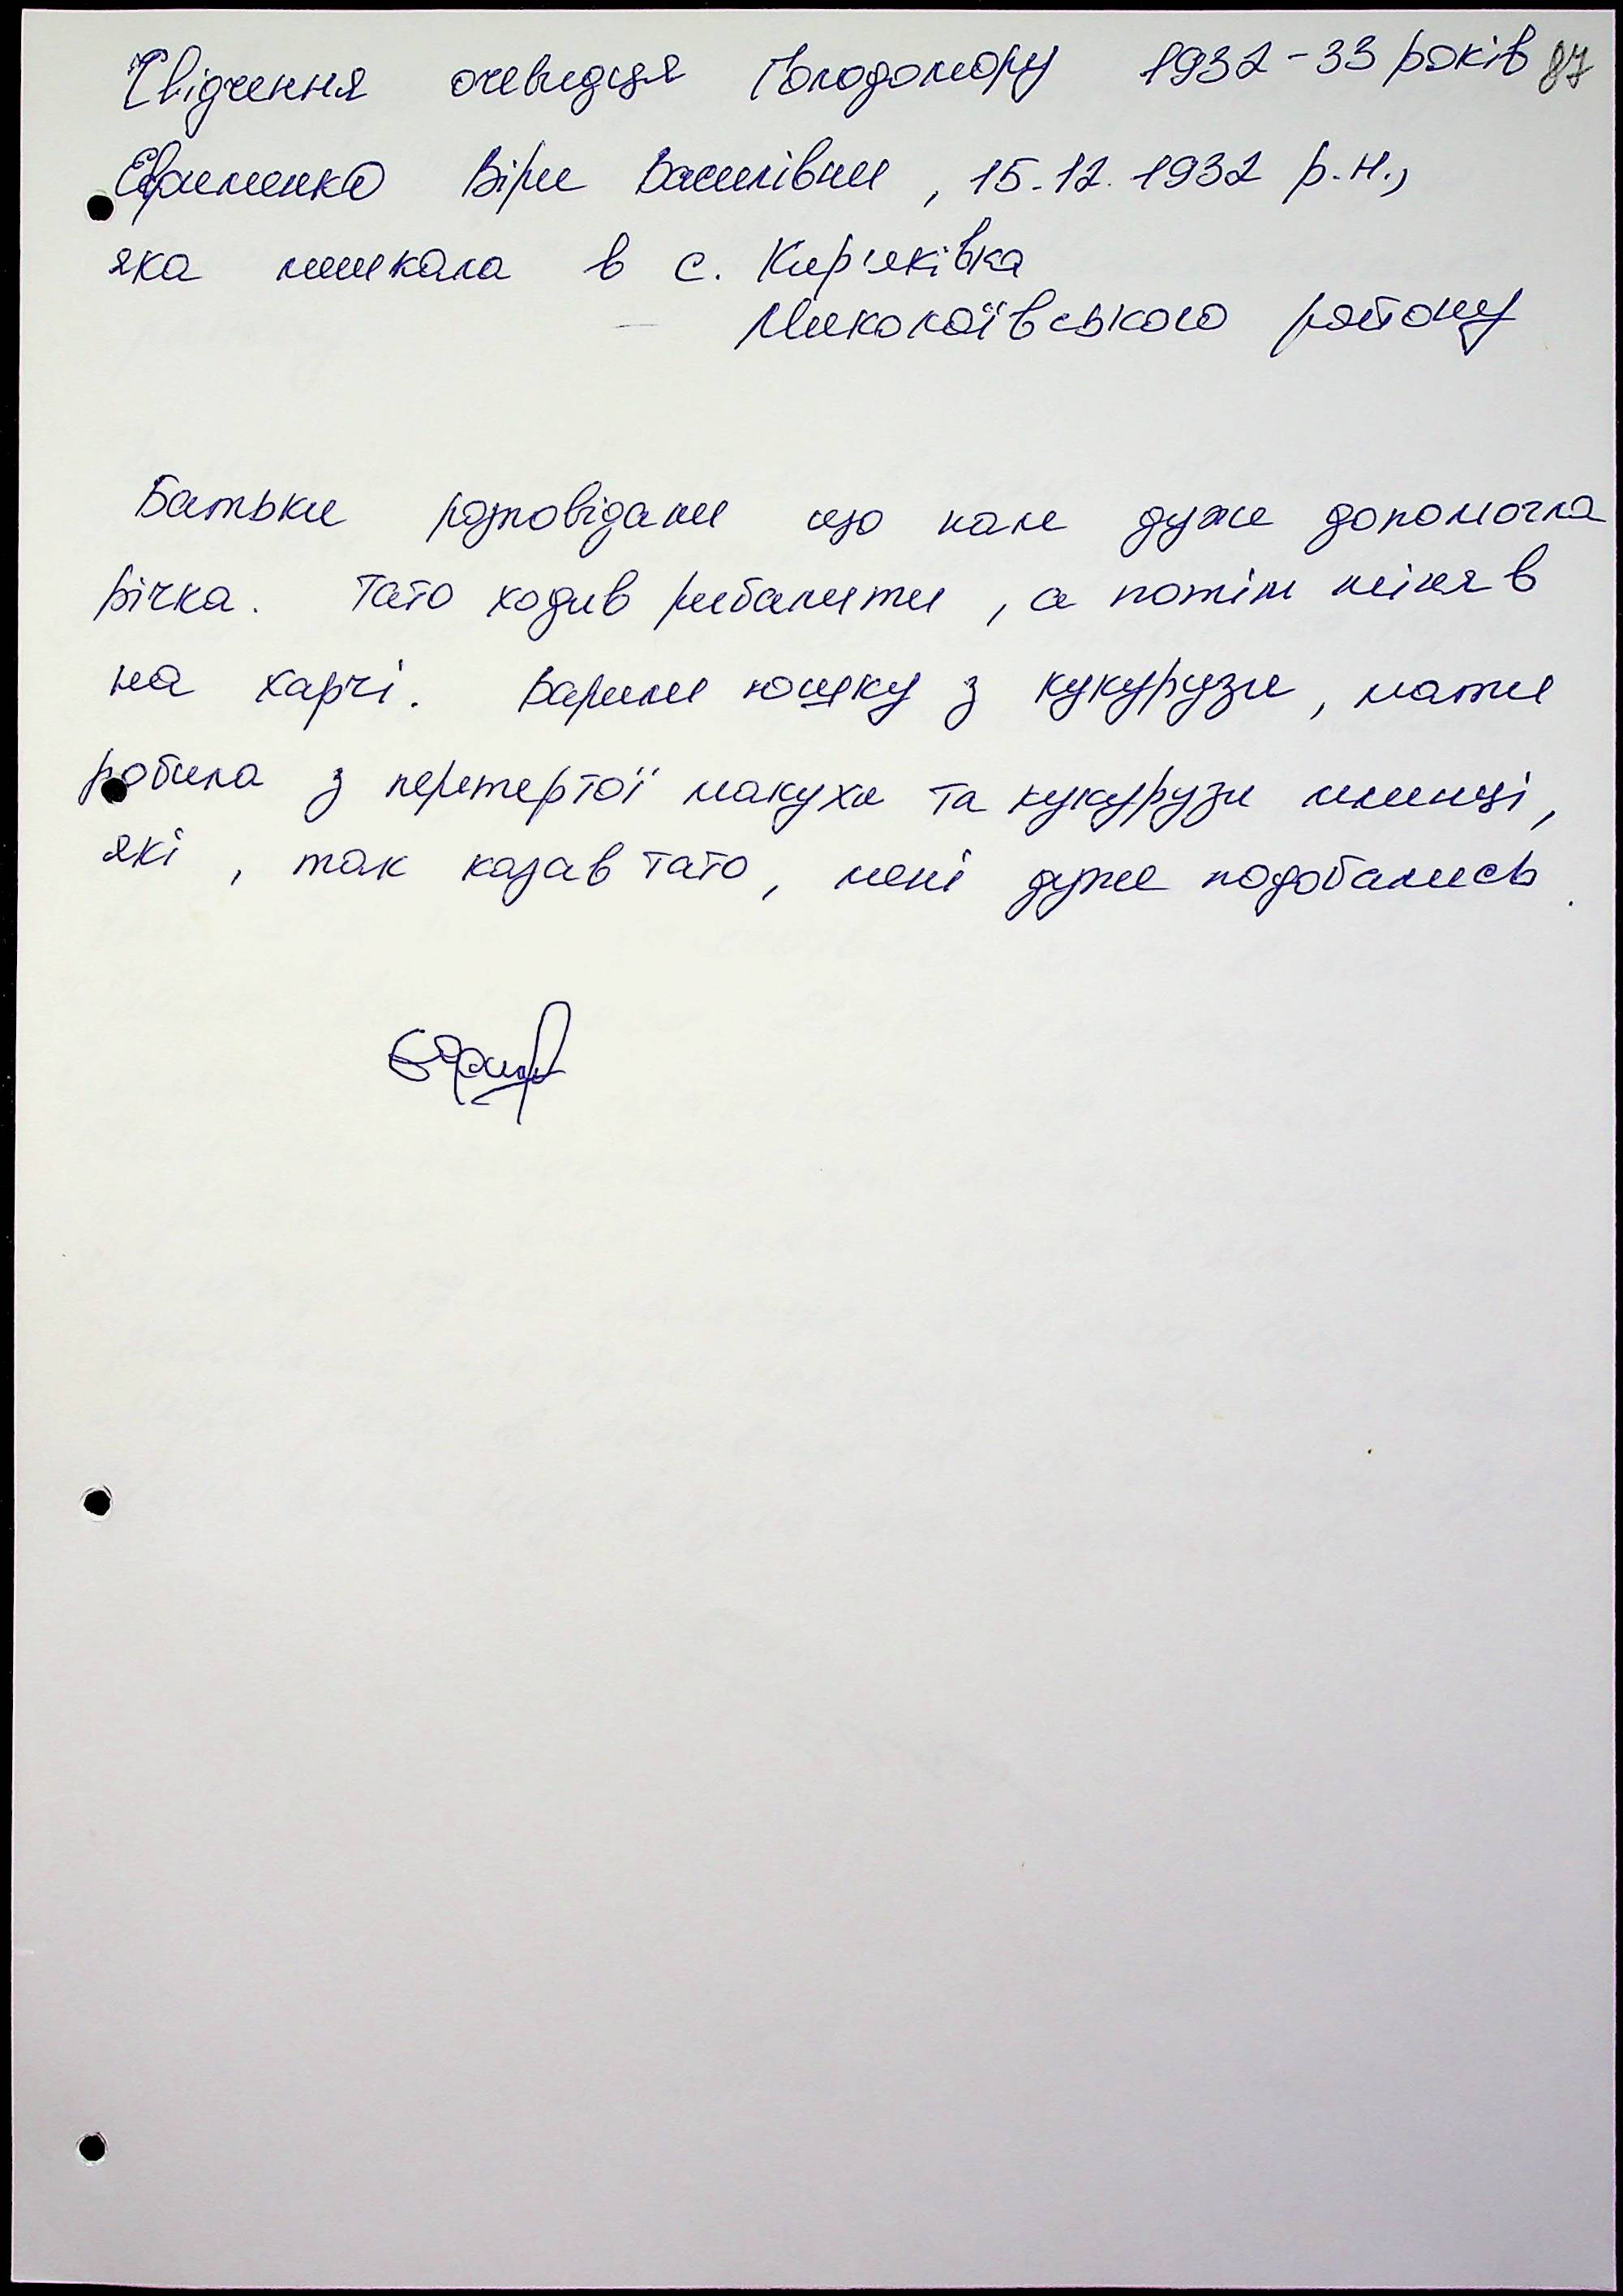 Свідчення очевидця Голодомору 1932-33 років 87
Єфименко Віри Василівни, 15.12.1932 р.н.,
яка мешкала в с. Кир'яківка
Миколаївського району
Батьки розповідали що нам дуже допомогла
річка. Тато ходив рибалити, а потім міняв
на харчі. Варили юшку з кукурузи, мати
робила з перетертої макухи та кукурузи млинці,
які, так казав тато, мені дуже подобались.